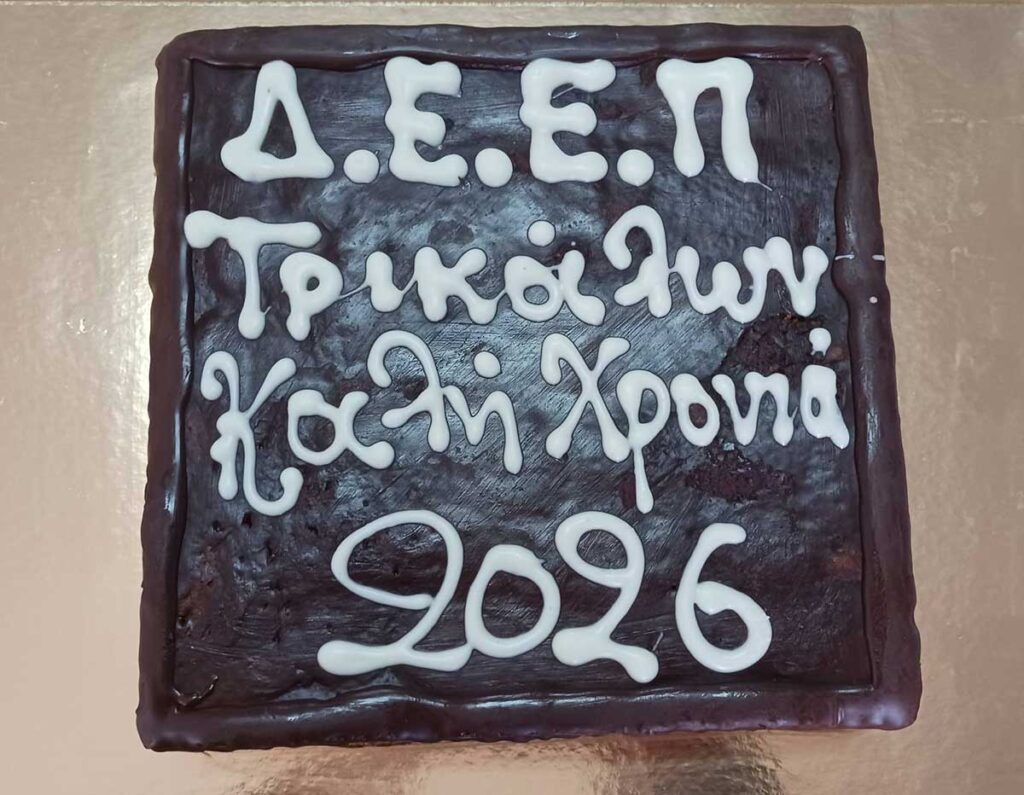 Δ.Ε.Ε.Π
Τρικάλων
Καλή Χρονιά
2026